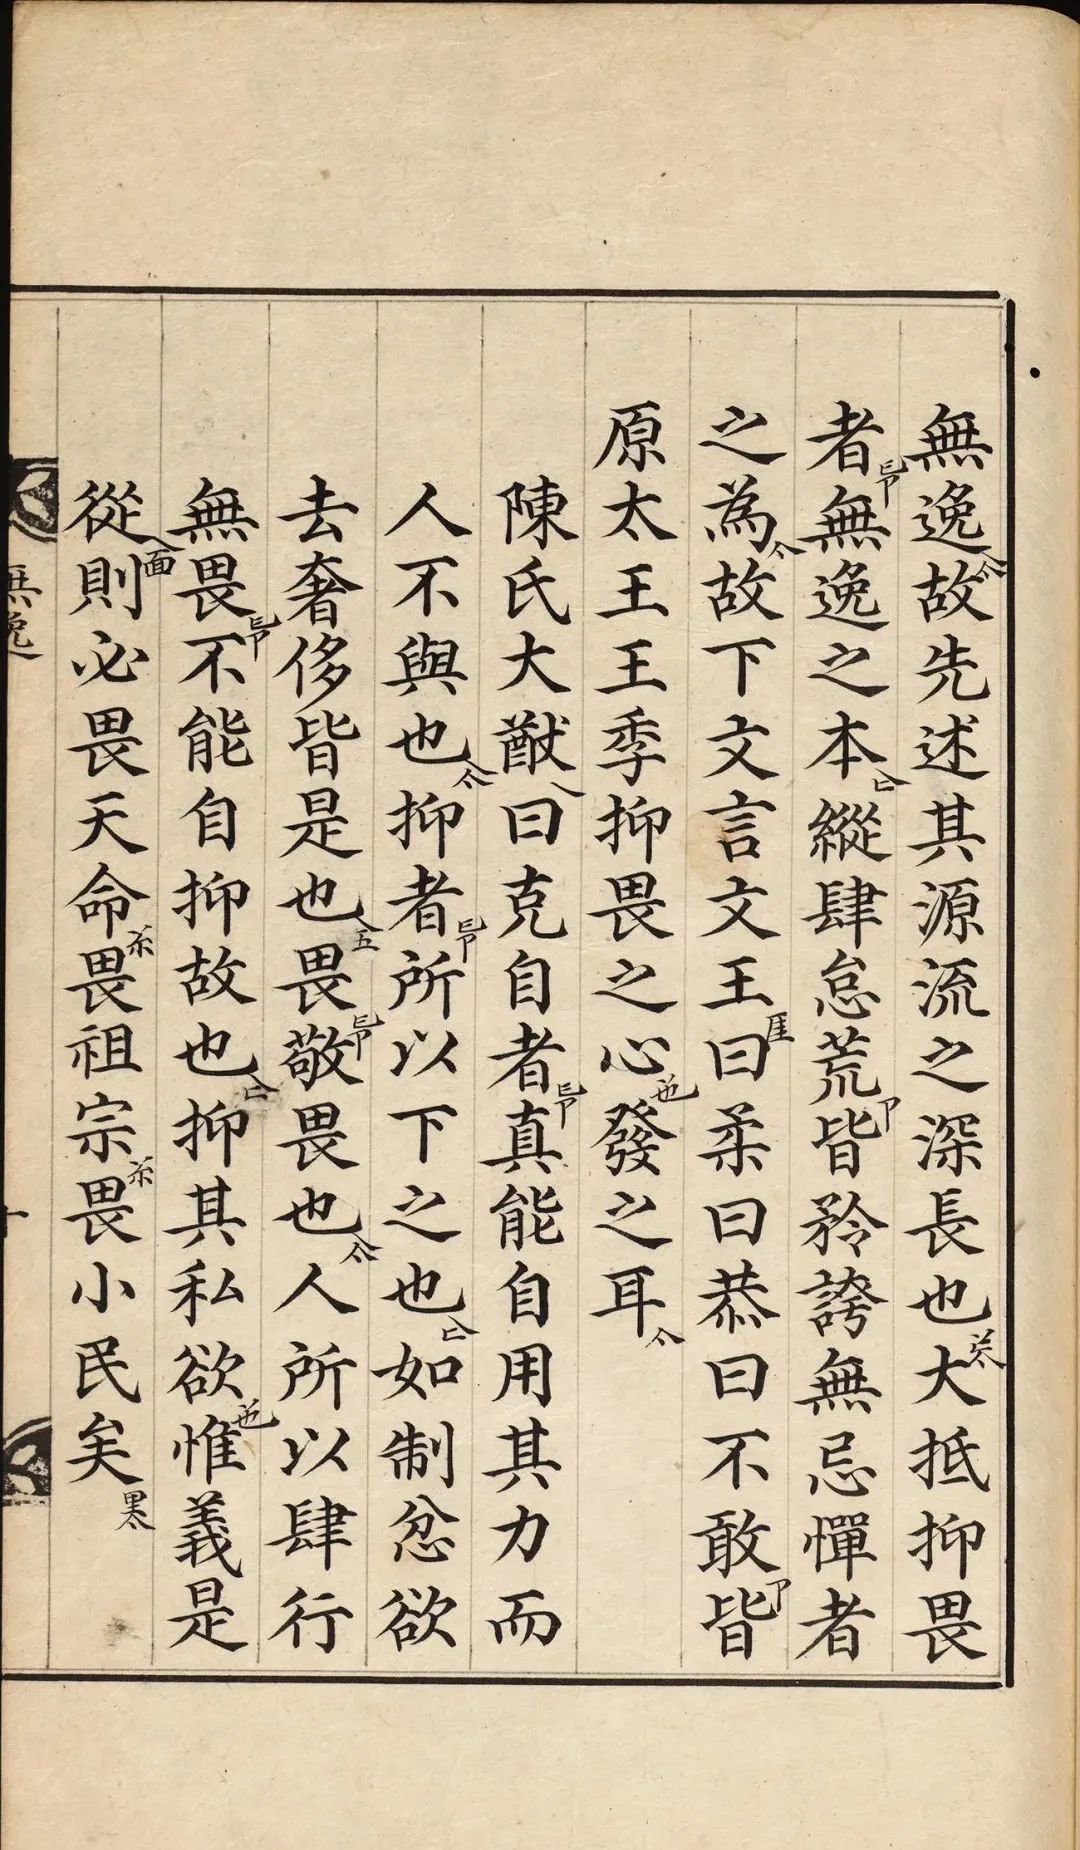 無逸故先述其源流之深長也大抵抑畏
者無逸之本縱肆怠荒皆矜誇無忌憚者
之為故下文言文王曰柔曰恭曰不敢皆
原太王王季抑畏之心發之耳
陳氏大猷曰克自者真能自用其力而
人不與也抑者所以下之也如制忿欲
去奢侈皆是也畏敬畏也人所以肆行
無畏不能自抑故也抑其私欲惟義是
從則必畏天命畏祖宗畏小民矣
無逸